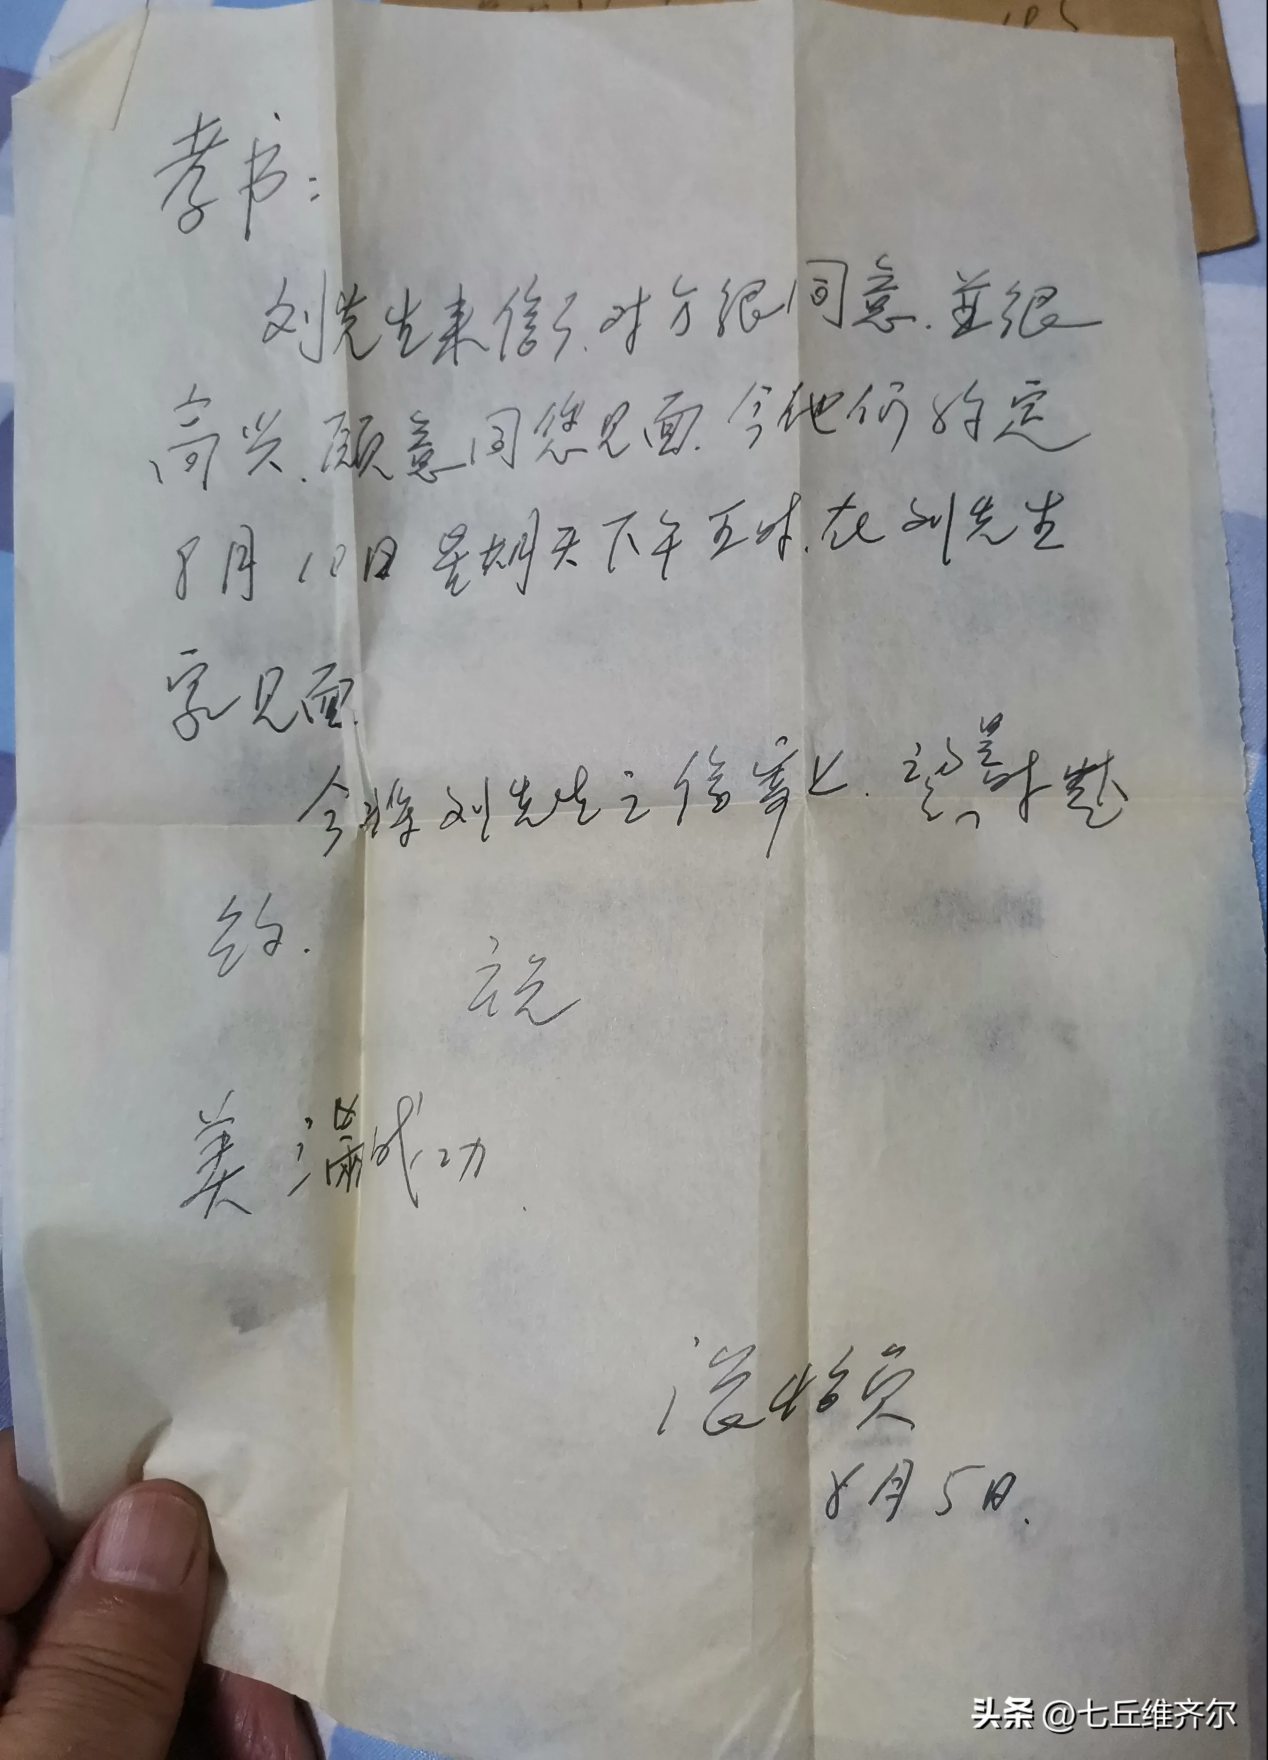 孝书：
刘先生来信了.对方很同意.並很
高兴.愿意同您见面.今他们约定
8月10日星期天下午五时.在刘先生
家见面.
今将刘先生之信寄上.望累时赴
约.
祝
美满成功
8月5日.
头条 @七丘维齐尔